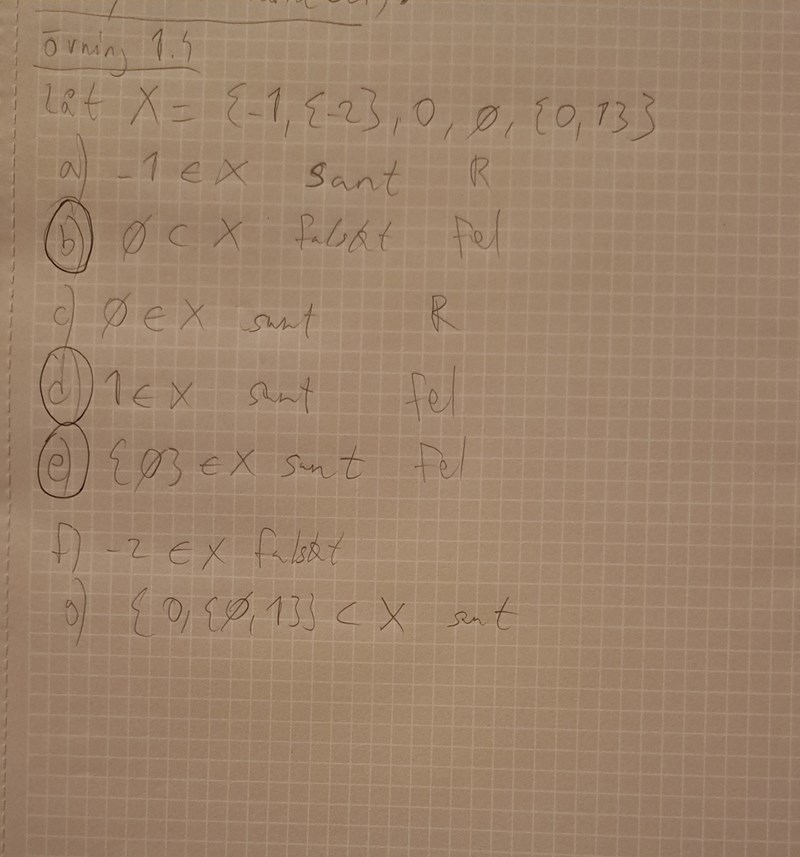 övning 1.4
Låt X = {-1, {-2}, 0, ø, {0,1}}
a) -1 ∈ X sant R
b) Ø ⊂ X falskt fel
c) Ø ∈ X sant R
d) 1 ∈ X sant fel
e) {Ø} ∈ X sant fel
f) -2 ∈ X falskt
g) {0, {Ø, 1}} ⊂ X sant